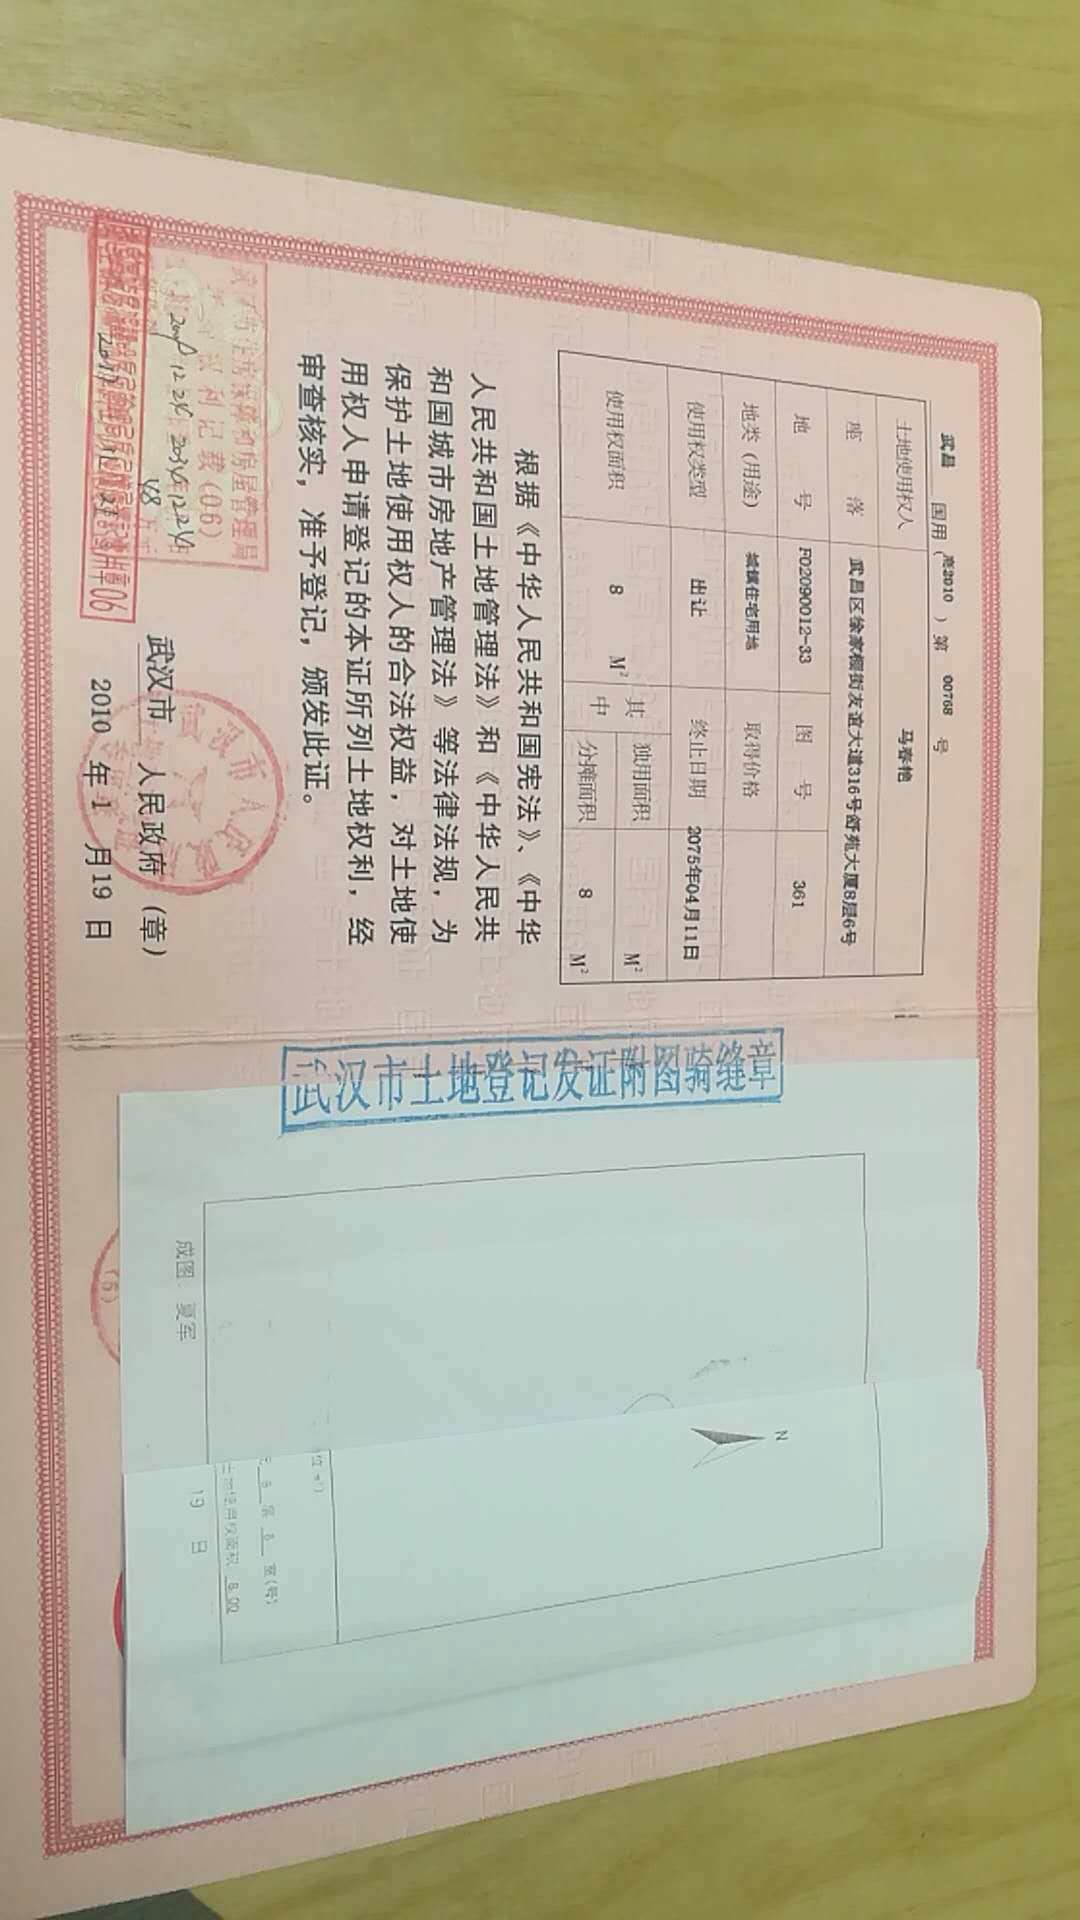 武昌 国用（商2010）第 00768 号
土地使用权人 马春艳
座 落 武昌区徐家棚街友谊大道316号舒苑大厦8层6号
地 号 F02090012-33 图 号 361
地类（用途） 城镇住宅用地 取得价格
使用权类型 出让 终止日期 2075年04月11日
使用权面积 8 M² 其中 独用面积 M²
分摊面积 8 M²
根据《中华人民共和国宪法》、《中华
人民共和国土地管理法》和《中华人民共
和国城市房地产管理法》等法律法规，为
保护土地使用权人的合法权益，对土地使
用权人申请登记的本证所列土地权利，经
审查核实，准予登记，颁发此证。
武汉市 人民政府（章）
2010 年 1 月 19 日
武汉市住房保障和房屋管理局
权利记载（06）
武汉市土地登记发证附图骑缝章
N
成图：夏军
19 日
8 第 6 室(号)
土地使用权面积 8.00
(5)